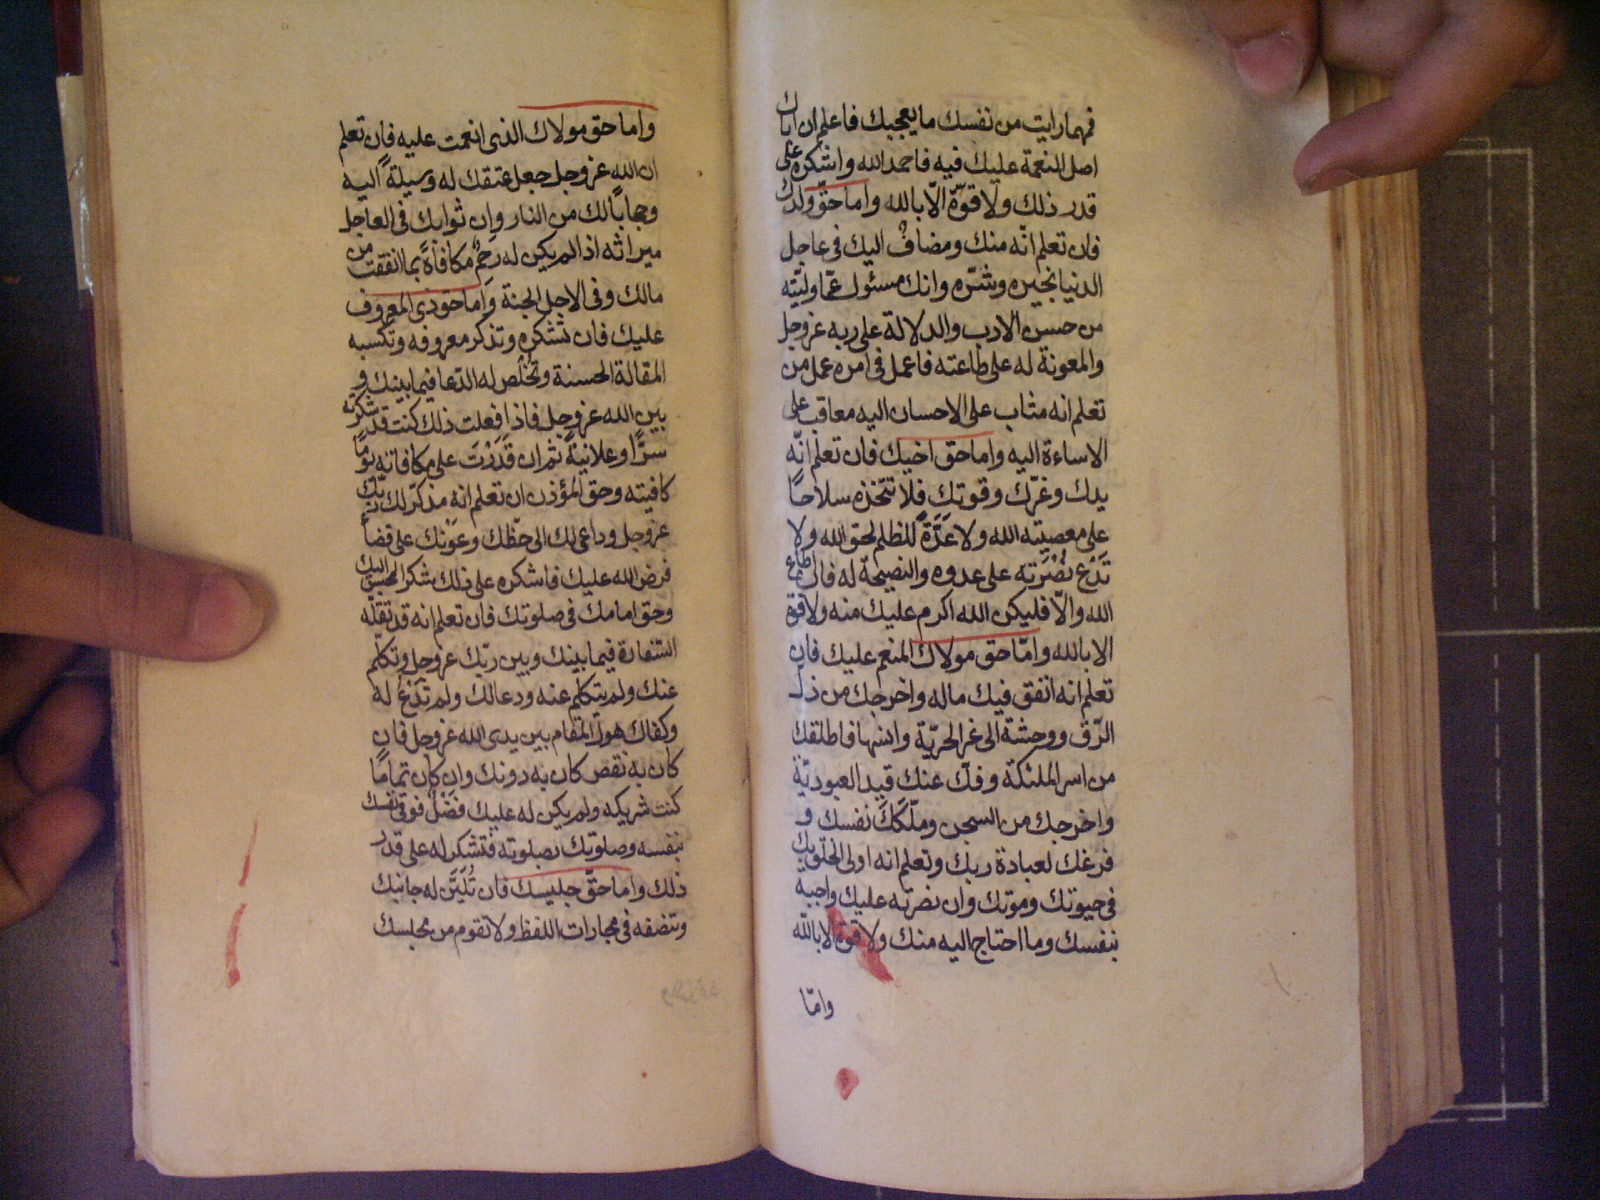 فمهما رايت من نفسك ما يعجبك فاعلم ان اباك
اصل النعمة عليك فيه فاحمد الله واشكره على
قدر ذلك ولا قوّة الّا بالله واما حقّ ولدك
فان تعلم انّه منك ومضافٌ اليك فى عاجل
الدنيا بخيره وشرّه وانك مسئول عمّا وليّته
من حسن الادب والدلالة على ربه عزوجل
والمعونة له على طاعته فاعمل فى امره عمل من
تعلم انه مثاب على الاحسان اليه معاقب على
الاساءة اليه واما حق اخيك فان تعلم انّه
يدك وعزّك وقوتك فلا تتّخذه سلاحًا
على معصيته الله ولا عَدَّةً للظلم لحق الله ولا
تَدَع نُصْرَته على عدوه والنصيحة له فان اطاع
الله والّا فليكن الله اكرم عليك منه ولا قوة
الا بالله وامّا حق مولاك المنعم عليك فان
تعلم انه انفق فيك ماله واخرجك من ذلّ
الرّق ووحشة الى عز الحريّة وانسها فاطلقك
من اسر الملكة وفكّ عنك قيد العبوديّة
واخرجك من السجن وملّكَكَ نفسك و
فرغك لعبادة ربك وتعلم انه اولى الخلق بك
فى حيوتك وموتك وان نصرته عليك واجبة
بنفسك وما احتاج اليه منك ولا قوة الا بالله
وامّا
واما حق مولاك الذى انعمت عليه فان تعلم
ان الله عزوجل جعل عتقك له وسيلة اليه
وحجابًا لك من النار وان ثوابك فى العاجل
ميراثه اذا لم يكن له رحِمٌ مكافاةً بما انفقت من
مالك وفى الاجل الجنة واما حق ذى المعروف
عليك فان تشكره وتذكر معروفه وتكسبه
المقالة الحسنة وتُخْلص له الدّعا فيما بينك و
بين الله عزوجل فاذا فعلت ذلك كنت قد شكرته
سرًّا وعلانيةً ثم ان قَدَرْتَ على مكافاته يومًا
كافيته وحق المؤذن ان تعلم انه مذكّر لك ربّك
عزوجل وداعى لك الى حظّك وعَوْنك على قضاء
فرض الله عليك فاشكره على ذلك شكر المحسن اليك
وحق امامك فى صلوتك فان تعلم انه قد تقلّد
السّفارة فيما بينك وبين ربّك عزوجل وتكلّم
عنك ولم يتكلم عنه ودعا لك ولم تَدْعُ له
وكفاك هول المقام بين يدى الله عزوجل فان
كان به نقص كان به دونك وان كان تمامًا
كنت شريكه ولم يكن له عليك فضلٌ فوقى نفسك
بنفسه وصلوتك بصلوته فتشكر له على قدر
ذلك واما حقّ جليسك فان تُلَيّن له جانبك
وتنصفه فى مجارات اللفظ ولا تقوم من مجلسك